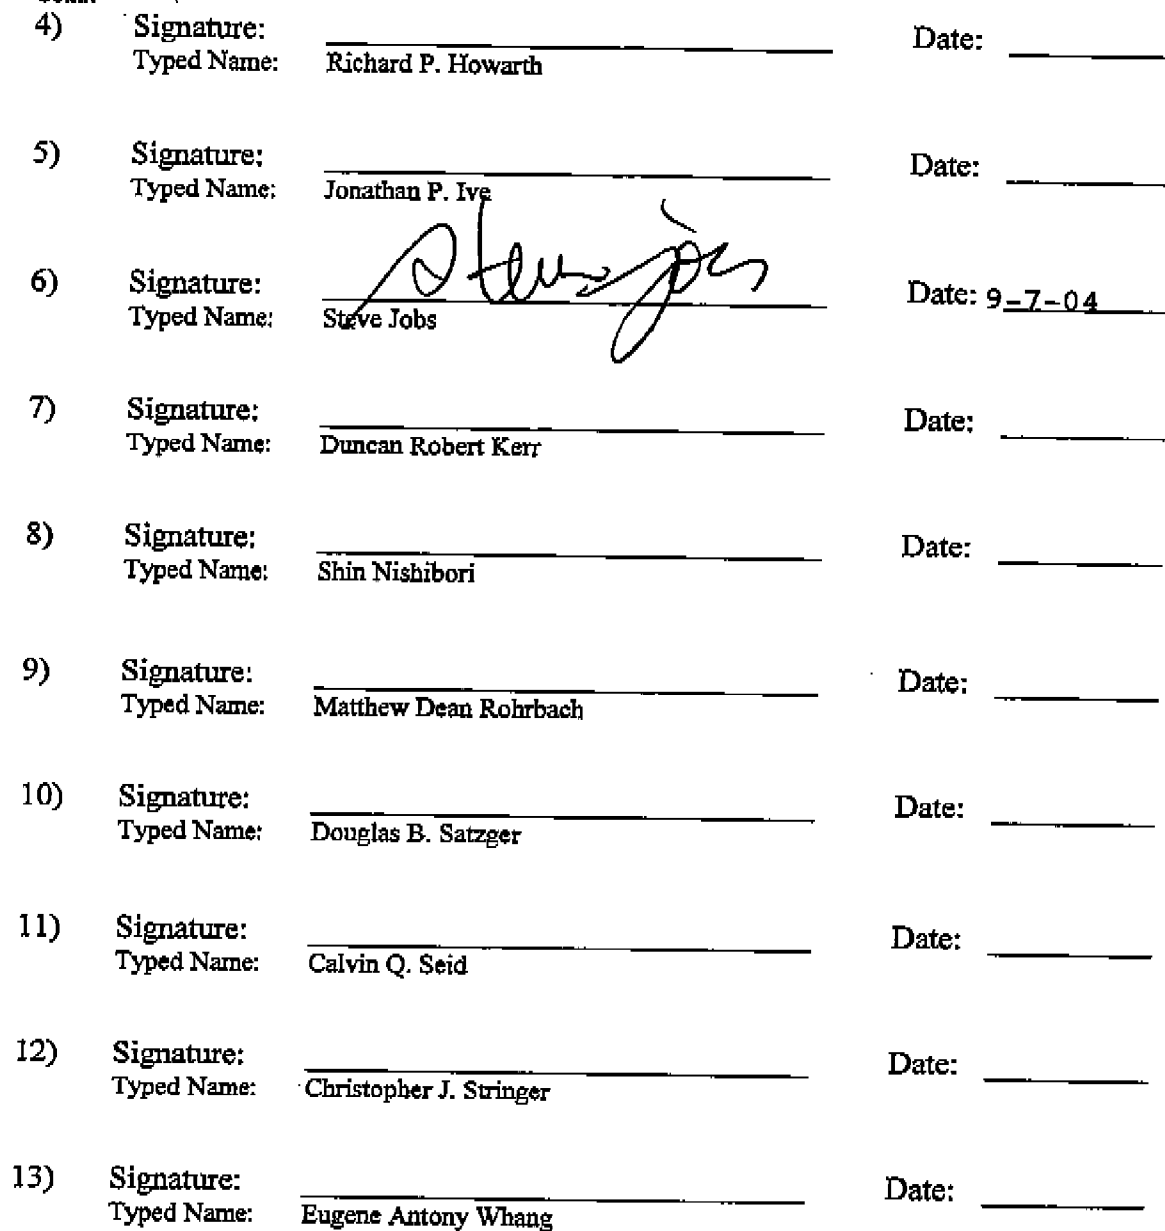 4) Signature: Date:
Typed Name: Richard P. Howarth
5) Signature: Date:
Typed Name: Jonathan P. Ive
6) Signature: steve jobs Date: 9-7-04
Typed Name: Steve Jobs
7) Signature: Date:
Typed Name: Duncan Robert Kerr
8) Signature: Date:
Typed Name: Shin Nishibori
9) Signature: Date:
Typed Name: Matthew Dean Rohrbach
10) Signature: Date:
Typed Name: Douglas B. Satzger
11) Signature: Date:
Typed Name: Calvin Q. Seid
12) Signature: Date:
Typed Name: Christopher J. Stringer
13) Signature: Date:
Typed Name: Eugene Antony Whang